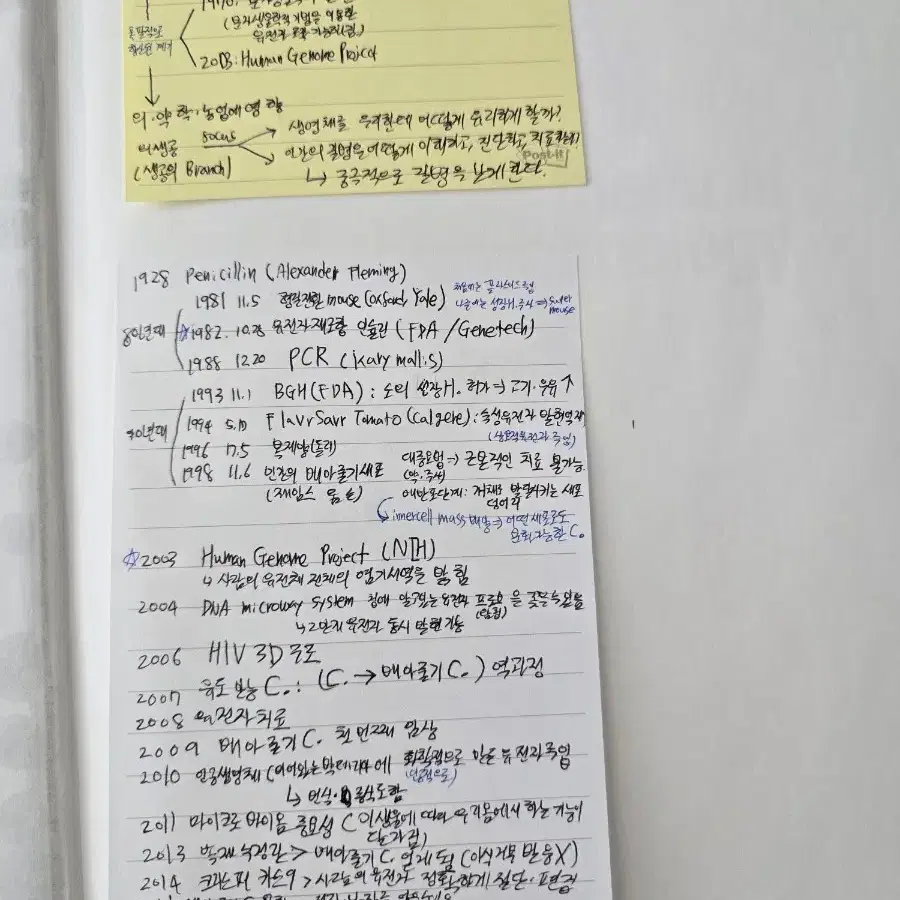 (분자생물학적 기법을 이용한
유전자
2003: Human Genome Project
의·약학·농업에 영향
의생공 focus 생명체를 우리한테 어떻게 유리하게 할까?
(생공의 Branch) 인간의 질병을 어떻게 이해하고, 진단하고, 치료
Post-it
↳ 궁극적으로 질병을 낫게 한다.
1928 Penicillin (Alexander Fleming)
1981 11.5 형질전환 mouse (Oxford Yale)
나중에는 성장H. 주사 ⇒ Super mouse
80년대 ☆1982. 10.28 유전자재조합 인슐린 (FDA / Genetech)
1988 12.20 PCR (kary mallis)
1993 11.1 BGH (FDA) : 소의 성장H. 허가 ⇒ 고기·우유 ↑
90년대 1994 5.17 FlavrSavr Tomato (Calgene) : 숙성유전자 발현억제
1996 7.5 복제양 (돌리)
대증요법 ⇒ 근본적인 치료 불가능
1998 11.6 인간의 배아줄기세포 (약, 주사)
(제임스 톰슨) 배반포단계: 개체로 발달시키는 세포
덩어리
innercell mass 배양 ⇒ 어떤 세포로도
분화 가능한 C.
☆2003 Human Genome Project (NIH)
↳ 사람의 유전체 전체의 염기서열을 밝힘
2004 DNA microway system
↳ 2만개 유전자 동시 발현 가능
2006 HIV 3D 구조
2007 유도만능 C. : (C. → 배아줄기 C.) 역과정
2008 유전자치료
2009 배아줄기 C. 첫 번째 임상
2010 인공생명체 (비어있는 박테리아에 화학적으로 만든 유전자 죽입
(인공적으로)
↳ 번식·증식도 함
2011 마이크로바이옴 중요성 (미생물에 따라 우리몸에서 하는 기능이
달라짐)
2013 복제 > 배아줄기 C. 얻게 됨 (이식거부반응X)
2014 크리스퍼 카스9 > 사람의 유전자 정확하게 절단·편집